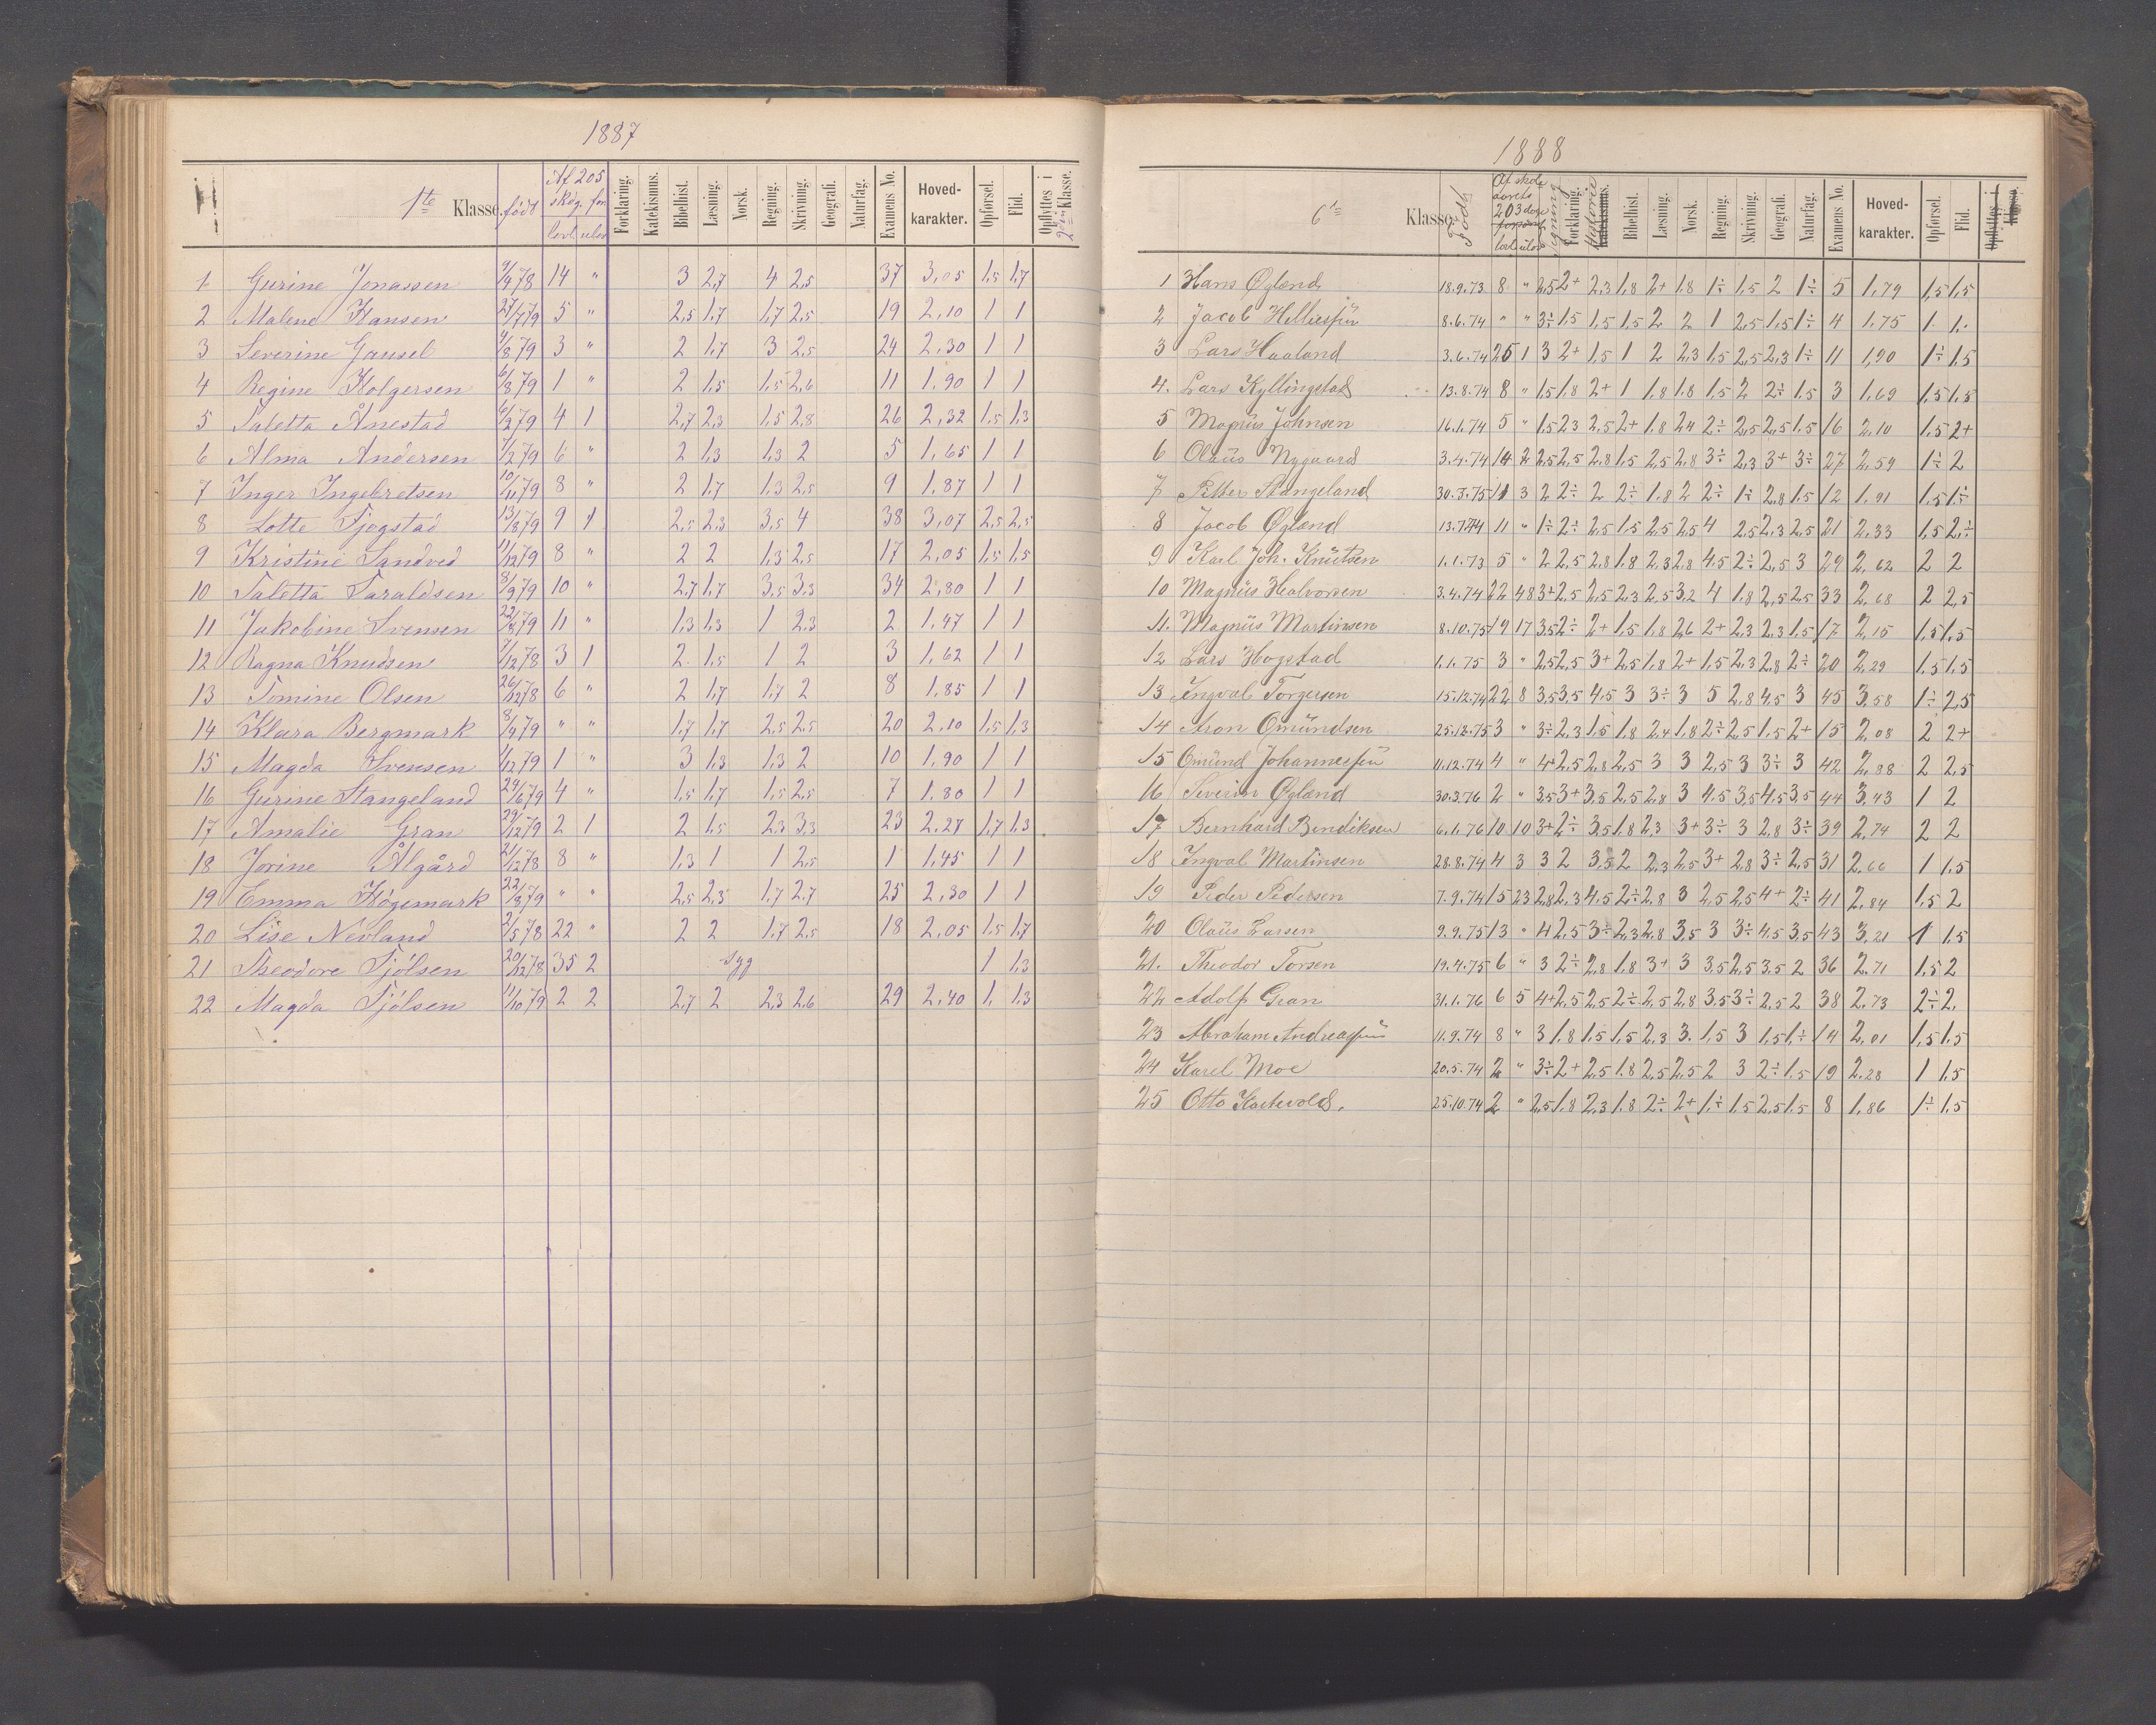 1887
1te Klasse. født Af 205 skdg. for. lovl. ulov. Forklaring. Katekismus. Bibelhist. Læsning. Norsk. Regning. Skrivning. Geografi. Naturfag. Examens No. Hoved-karakter. Opførsel. Flid. Opflyttes i 2den Klasse.
1 Gurine Jonassen 9/9 78 14 " 3 2,7 4 2,5 37 3,05 1,5 1,7
2 Malene Hansen 27/7 79 5 " 2,5 1,7 1,7 2,5 19 2,10 1 1
3 Severine Gausel 4/8 79 3 " 2 1,7 3 2,5 24 2,30 1 1
4 Regine Holgersen 6/8 79 1 " 2 1,5 1,5 2,6 11 1,90 1 1
5 Taletta Ånestad 6/2 79 4 1 2,7 2,3 1,5 2,8 26 2,32 1,5 1,3
6 Alma Andersen 7/2 79 6 " 2 1,3 1,3 2 5 1,65 1 1
7 Inger Ingebretsen 10/11 79 8 " 2 1,7 1,3 2,5 9 1,87 1 1
8 Lotte Tjogstad 13/8 79 9 1 2,5 2,3 3,5 4 38 3,07 2,5 2,5
9 Kristine Sandved 11/12 79 8 " 2 2 1,3 2,5 17 2,05 1,5 1,5
10 Taletta Taraldsen 8/9 79 10 " 2,7 1,7 3,5 3,3 34 2,80 1 1
11 Jakobine Svensen 22/8 79 11 " 1,3 1,3 1 2,3 2 1,47 1 1
12 Ragna Knudsen 7/12 78 3 1 2 1,5 1 2 3 1,62 1 1
13 Tomine Olsen 26/12 78 6 " 2 1,7 1,7 2 8 1,85 1 1
14 Klara Bergmark 8/9 79 " " 1,7 1,7 2,5 2,5 20 2,10 1,5 1,3
15 Magda Svensen 1/12 79 1 " 3 1,3 1,3 2 10 1,90 1 1
16 Gurine Stangeland 29/6 79 4 " 1,5 1,7 1,5 2,5 7 1,80 1 1
17 Amalie Gran 29/12 79 2 1 2 1,5 2,3 3,3 23 2,27 1,7 1,3
18 Jorine Ålgård 21/12 78 8 " 1,3 1 1 2,5 1 1,45 1 1
19 Emma Högemark 22/3 79 " " 2,5 2,3 1,7 2,7 25 2,30 1 1
20 Lise Nevland 2/5 78 22 " 2 2 1,7 2,5 18 2,05 1,5 1,7
21 Theodore Tjølsen 20/12 78 35 2 syg 1 1,3
22 Magda Tjölsen 11/10 79 2 2 2,7 2 2,3 2,6 29 2,40 1, 1,3
1888
6te Klasse. Født Af skole aarets 203 dage forsømt lovl ulov Tegning Forklaring. Historie Katekismus. Bibelhist. Læsning. Norsk. Regning. Skrivning. Geografi. Naturfag. Examens No. Hoved-karakter. Opførsel. Flid. Opflyttes i Klasse.
1 Hans Øgland 18.9.73 8 " 2,5 2+ 2,3 1,8 2+ 1,8 1÷ 1,5 2 1÷ 5 1,79 1,5 1,5
2 Jacob Helliesen 8.6.74 " " 3÷ 1,5 1,5 1,5 2 2 1 2,5 1,5 1÷ 4 1,75 1. 1.
3 Lars Haaland 3.6.74 25 1 3 2+ 1,5 1 2 2,3 1,5 2,5 2,3 1÷ 11 1,90 1÷ 1,5
4. Lars Kyllingstad 13.8.74 8 " 1,5 1,8 2+ 1 1,8 1,8 1,5 2 2÷ 1,5 3 1,69 1,5 1,8
5 Magnus Johnsen 16.1.74 5 " 1,5 2,3 2,5 2+ 1,8 2,4 2÷ 2,5 2,5 1,5 16 2,10 1,5 2+
6 Olaus Nygaard 3.4.74 14 2 2,5 2,5 2,8 1,5 2,5 2,8 3÷ 2,3 3+ 3÷ 27 2,59 1÷ 2
7 Petter Stangeland 30.3.75 11 3 2 2÷ 2 2÷ 1,8 2 2÷ 1÷ 2,8 1,5 12 1,91 1,5 1÷
8 Jacob Øgland 13.7.74 11 " 1÷ 2÷ 2,5 1,5 2,5 2,5 4 2,5 2,3 2,5 21 2,33 1,5 2÷
9 Karl Joh. Knutsen 1.1.73 5 " 2 2,5 2,8 1,8 2,3 2,8 4,5 2÷ 2,5 3 29 2,62 2 2
10 Magnus Halvorsen 3.4.74 22 48 3+ 2,5 2,5 2,3 2,5 3,2 4 1,8 2,5 2,5 33 2,68 2 2,5
11. Magnus Martinsen 8.10.75 19 17 3,5 2÷ 2+ 1,5 1,8 2,6 2+ 2,3 2,3 1,5 17 2,15 1,5 1,5
12 Lars Hogstad 1.1.75 3 " 2,5 2,5 3+ 2,5 1,8 2+ 1,5 2,3 2,8 2÷ 20 2,29 1,5 1,5
13 Ingval Torgersen 15.12.74 22 8 3,5 3,5 4,5 3 3÷ 3 5 2,8 4,5 3 45 3,58 1÷ 2,5
14 Aron Omundsen 25.12.75 3 " 3÷ 2,3 1,5 1,8 2,4 1,8 2÷ 2,5 1,5 2+ 15 2,08 2 2+
15 Omund Johannesen 11.12.74 4 " 4+ 2,5 2,8 2,5 3 3 2,5 3 3÷ 3 42 2,88 2 2,5
16 Severin Øgland 30.3.76 2 " 3,5 3+ 3,5 2,5 2,8 3 4,5 3,5 4,5 3,5 44 3,43 1 2
17 Bernhard Bendiksen 6.1.76 10 10 3+ 2÷ 3,5 1,8 2,3 3+ 3÷ 3 2,8 3÷ 39 2,74 2 2
18 Ingval Martinsen 28.8.74 4 3 3 2 3,5 2 2,3 2,5 3+ 2,8 3÷ 2,5 31 2,66 1 1,5
19 Peder Pedersen 7.9.74 15 23 2,8 2,3 4,5 2÷ 2,8 3 2,5 2,5 4+ 2÷ 41 2,84 1,5 2
20 Olaus Larsen 9.9.75 13 " 4 2,5 3÷ 2,3 2,8 3,5 3 3÷ 4,5 3,5 43 3,21 1 1,5
21. Theodor Torsen 19.4.75 6 " 3 2÷ 2,8 1,8 3+ 3 3,5 2,5 3,5 2 36 2,71 1,5 2
22 Adolf Gran 31.1.76 6 5 4+ 2,5 2,5 2÷ 2,5 2,8 3,5 3÷ 2,5 2 38 2,73 2÷ 2.
23 Abraham Andreassen 11.9.74 8 " 3 1,8 1,5 1,5 2,3 3. 1,5 3 1,5 1÷ 14 2,01 1,5 1,5
24 Karel Moe 20.5.74 2 " 3÷ 2+ 2,5 1,8 2,5 2,5 2 3 2÷ 1,5 19 2,28 1 1,5
25 Otto 25.10.74 2 " 2,5 1,8 2,3 1,8 2÷ 2+ 1÷ 1,5 2,5 1,5 8 1,86 1÷ 1,5